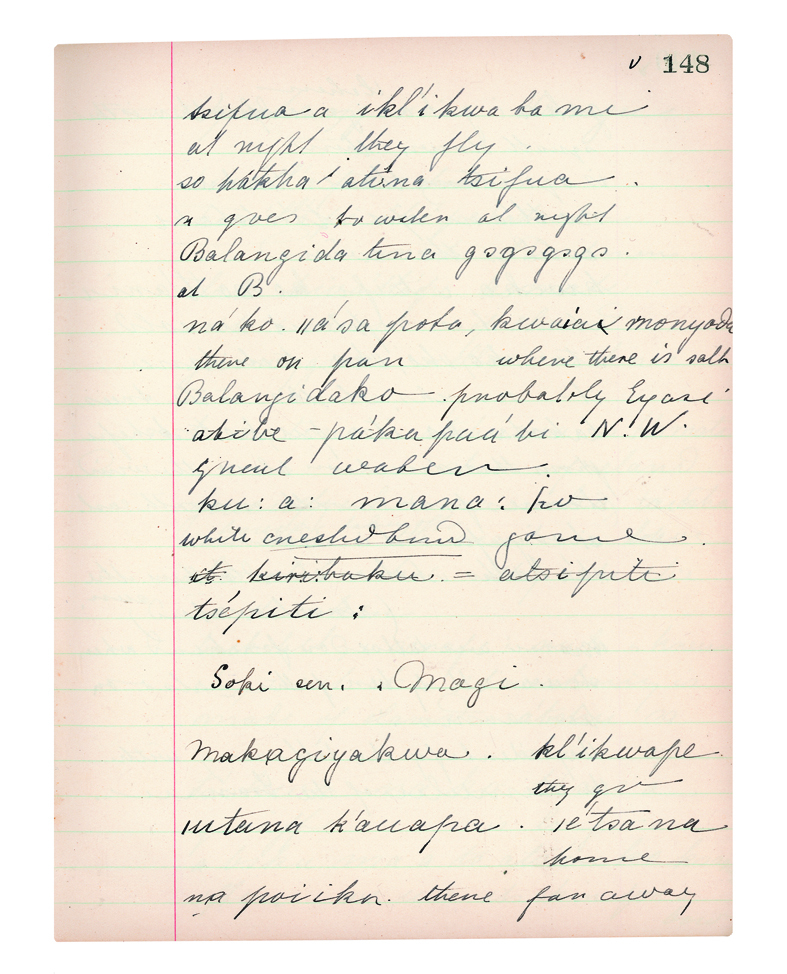 v 148
tsifua a ikl'ikwa ba mi
at night they fly .
so hátcha' atina tsifua .
goes to water at night
Balangida tina gsgsgsgs .
at B.
ná ko. ııa'sa pota, kwaiai monyoda
there on pan where there is salt
Balangidako . probably Eyasi
abibe - páka paá bi N.W.
great
ku: a: mana: ko
white game .
st. kiriboku = atsipiti
tsépiti :
Soki sen. . Magi .
Makagiyakwa . kl'ikwape
they go
ııtana k'auapa . ıétsa na
home
na poiika. there far away